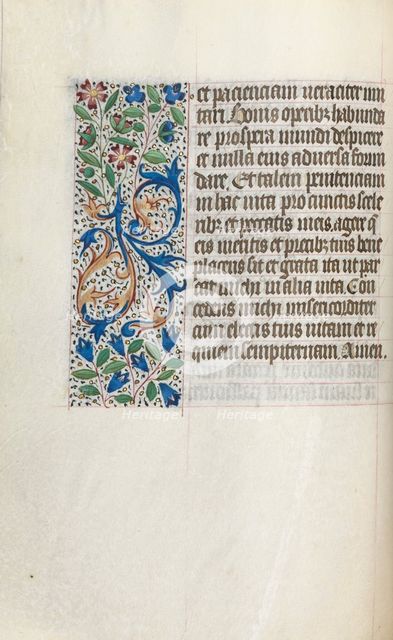 et pacienciam veraciter imi
tari. Bonis operibz habunda
re prospera mundi despicere
et nulla eius adversa formi
dare, Et talem penitenciam
in hac vita pro cunctis scele
ribz et peccatis meis, agere q̄
eis meritis et precibz tuis bene
placens sit et grata ita ut par
cat michi in alia vita Con
cedens michi misericorditer
cum electis tuis vitam et re
quiem sempiternam Amen.
Heritage
Heritage